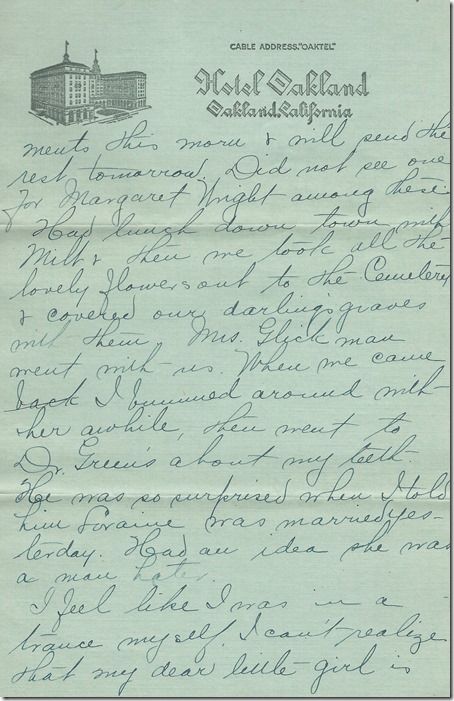 CABLE ADDRESS "OAKTEL"
Hotel Oakland
Oakland, California
ments this morn & will send the
rest tomorrow. Did not see one
for Margaret Wright among these.
Had lunch down town with
Milt & then we took all the
lovely flowers out to the Cemetery
& covered our darlings graves
with them. Mrs. Glickman
went with us. When we came
back I bummed around with
her awhile, then went to
Dr. Green's about my teeth.
He was so surprised when I told
him Loraine was married yes-
terday. Had an idea she was
a man hater.
I feel like I was in a
trance myself. I can't realize
that my dear little girl is